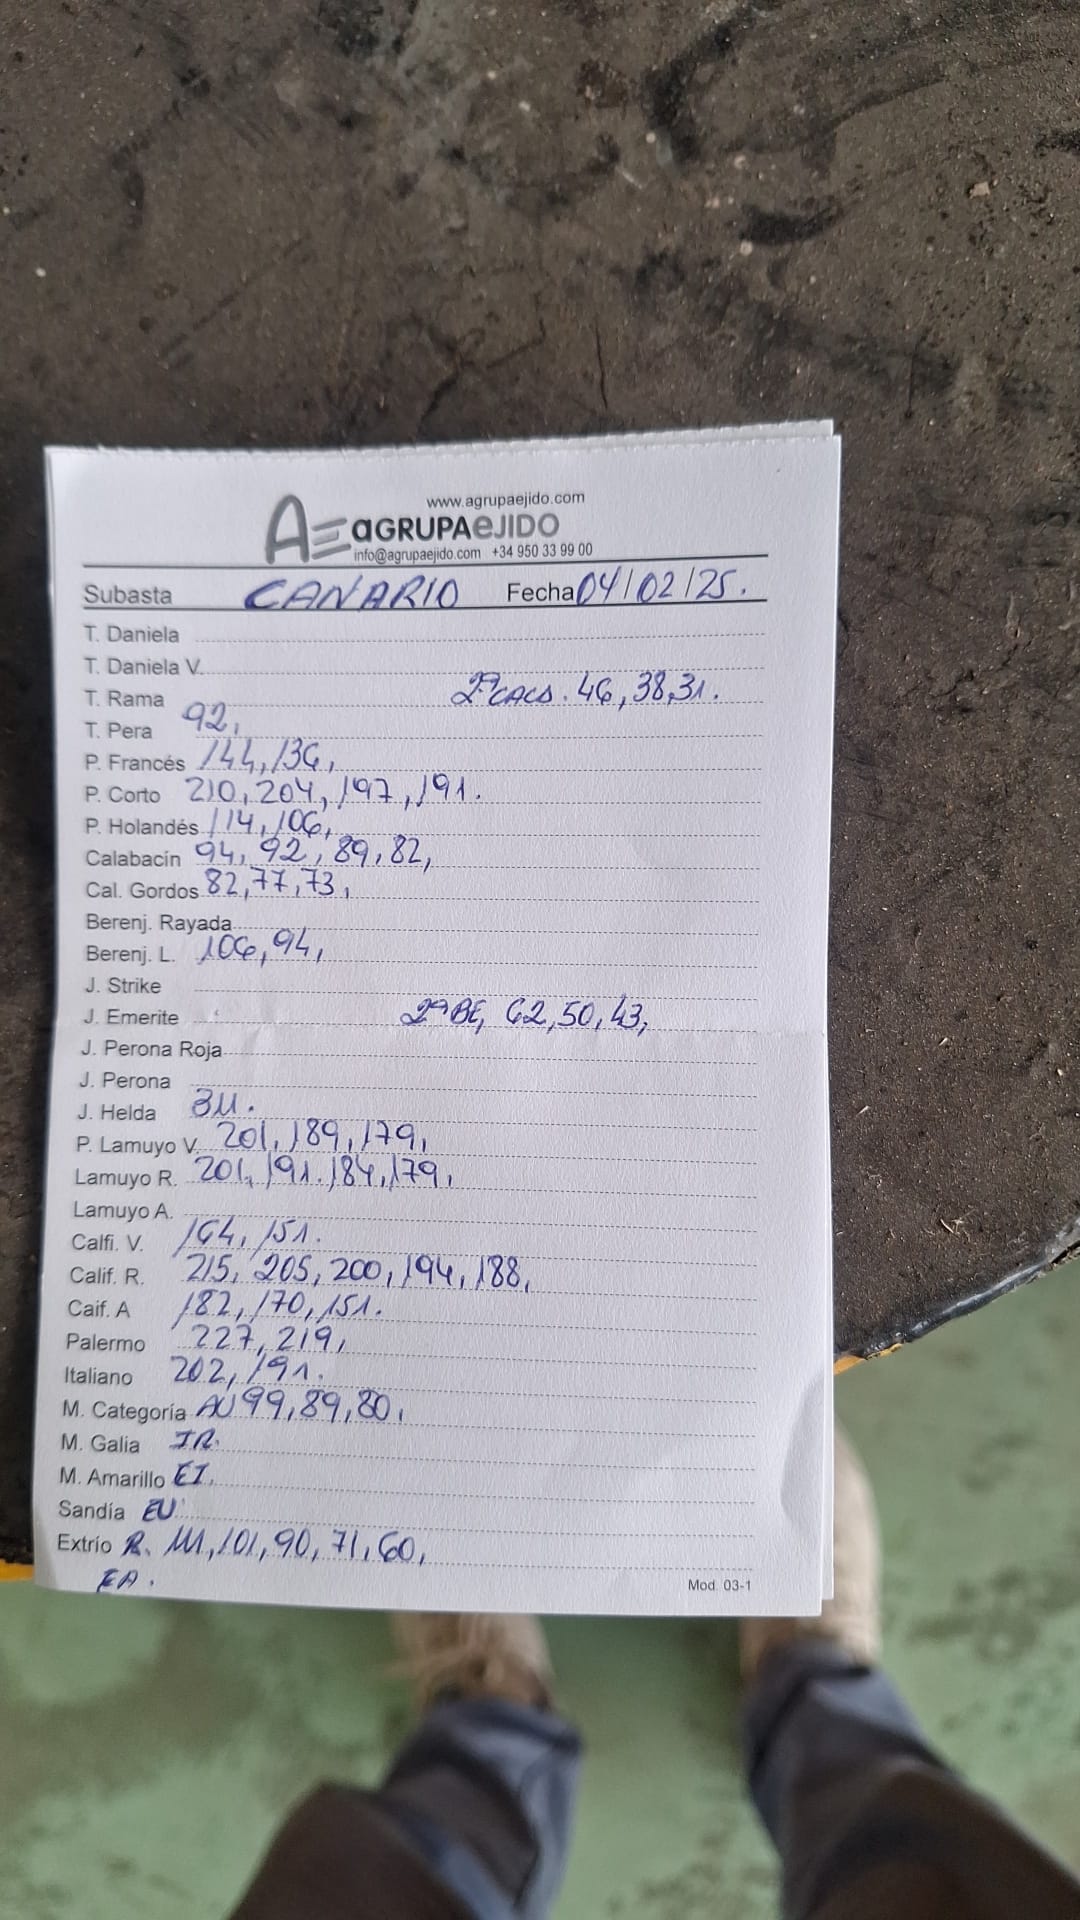 www.agrupaejido.com
AE aGRUPAeJIDO
info@agrupaejido.com +34 950 33 99 00
Subasta CANARIO Fecha 04/02/25.
T. Daniela
T. Daniela V.
T. Rama 2ª CACS. 46, 38, 31.
T. Pera 92,
P. Francés 144, 136,
P. Corto 210, 204, 197, 191.
P. Holandés 114, 106,
Calabacín 94, 92, 89, 82,
Cal. Gordos 82, 77, 73,
Berenj. Rayada
Berenj. L. 106, 94,
J. Strike
J. Emerite 2ª BE, 62, 50, 43,
J. Perona Roja
J. Perona
J. Helda 311.
P. Lamuyo V. 201, 189, 179,
Lamuyo R. 201, 191. 184, 179,
Lamuyo A.
Calfi. V. 164, 151.
Calif. R. 215, 205, 200, 194, 188,
Caif. A 182, 170, 151.
Palermo 227, 219,
Italiano 202, 191.
M. Categoría AU 99, 89, 80,
M. Galia IR.
M. Amarillo EI.
Sandía EU
Extrío R. 111, 101, 90, 71, 60,
EA.
Mod. 03-1